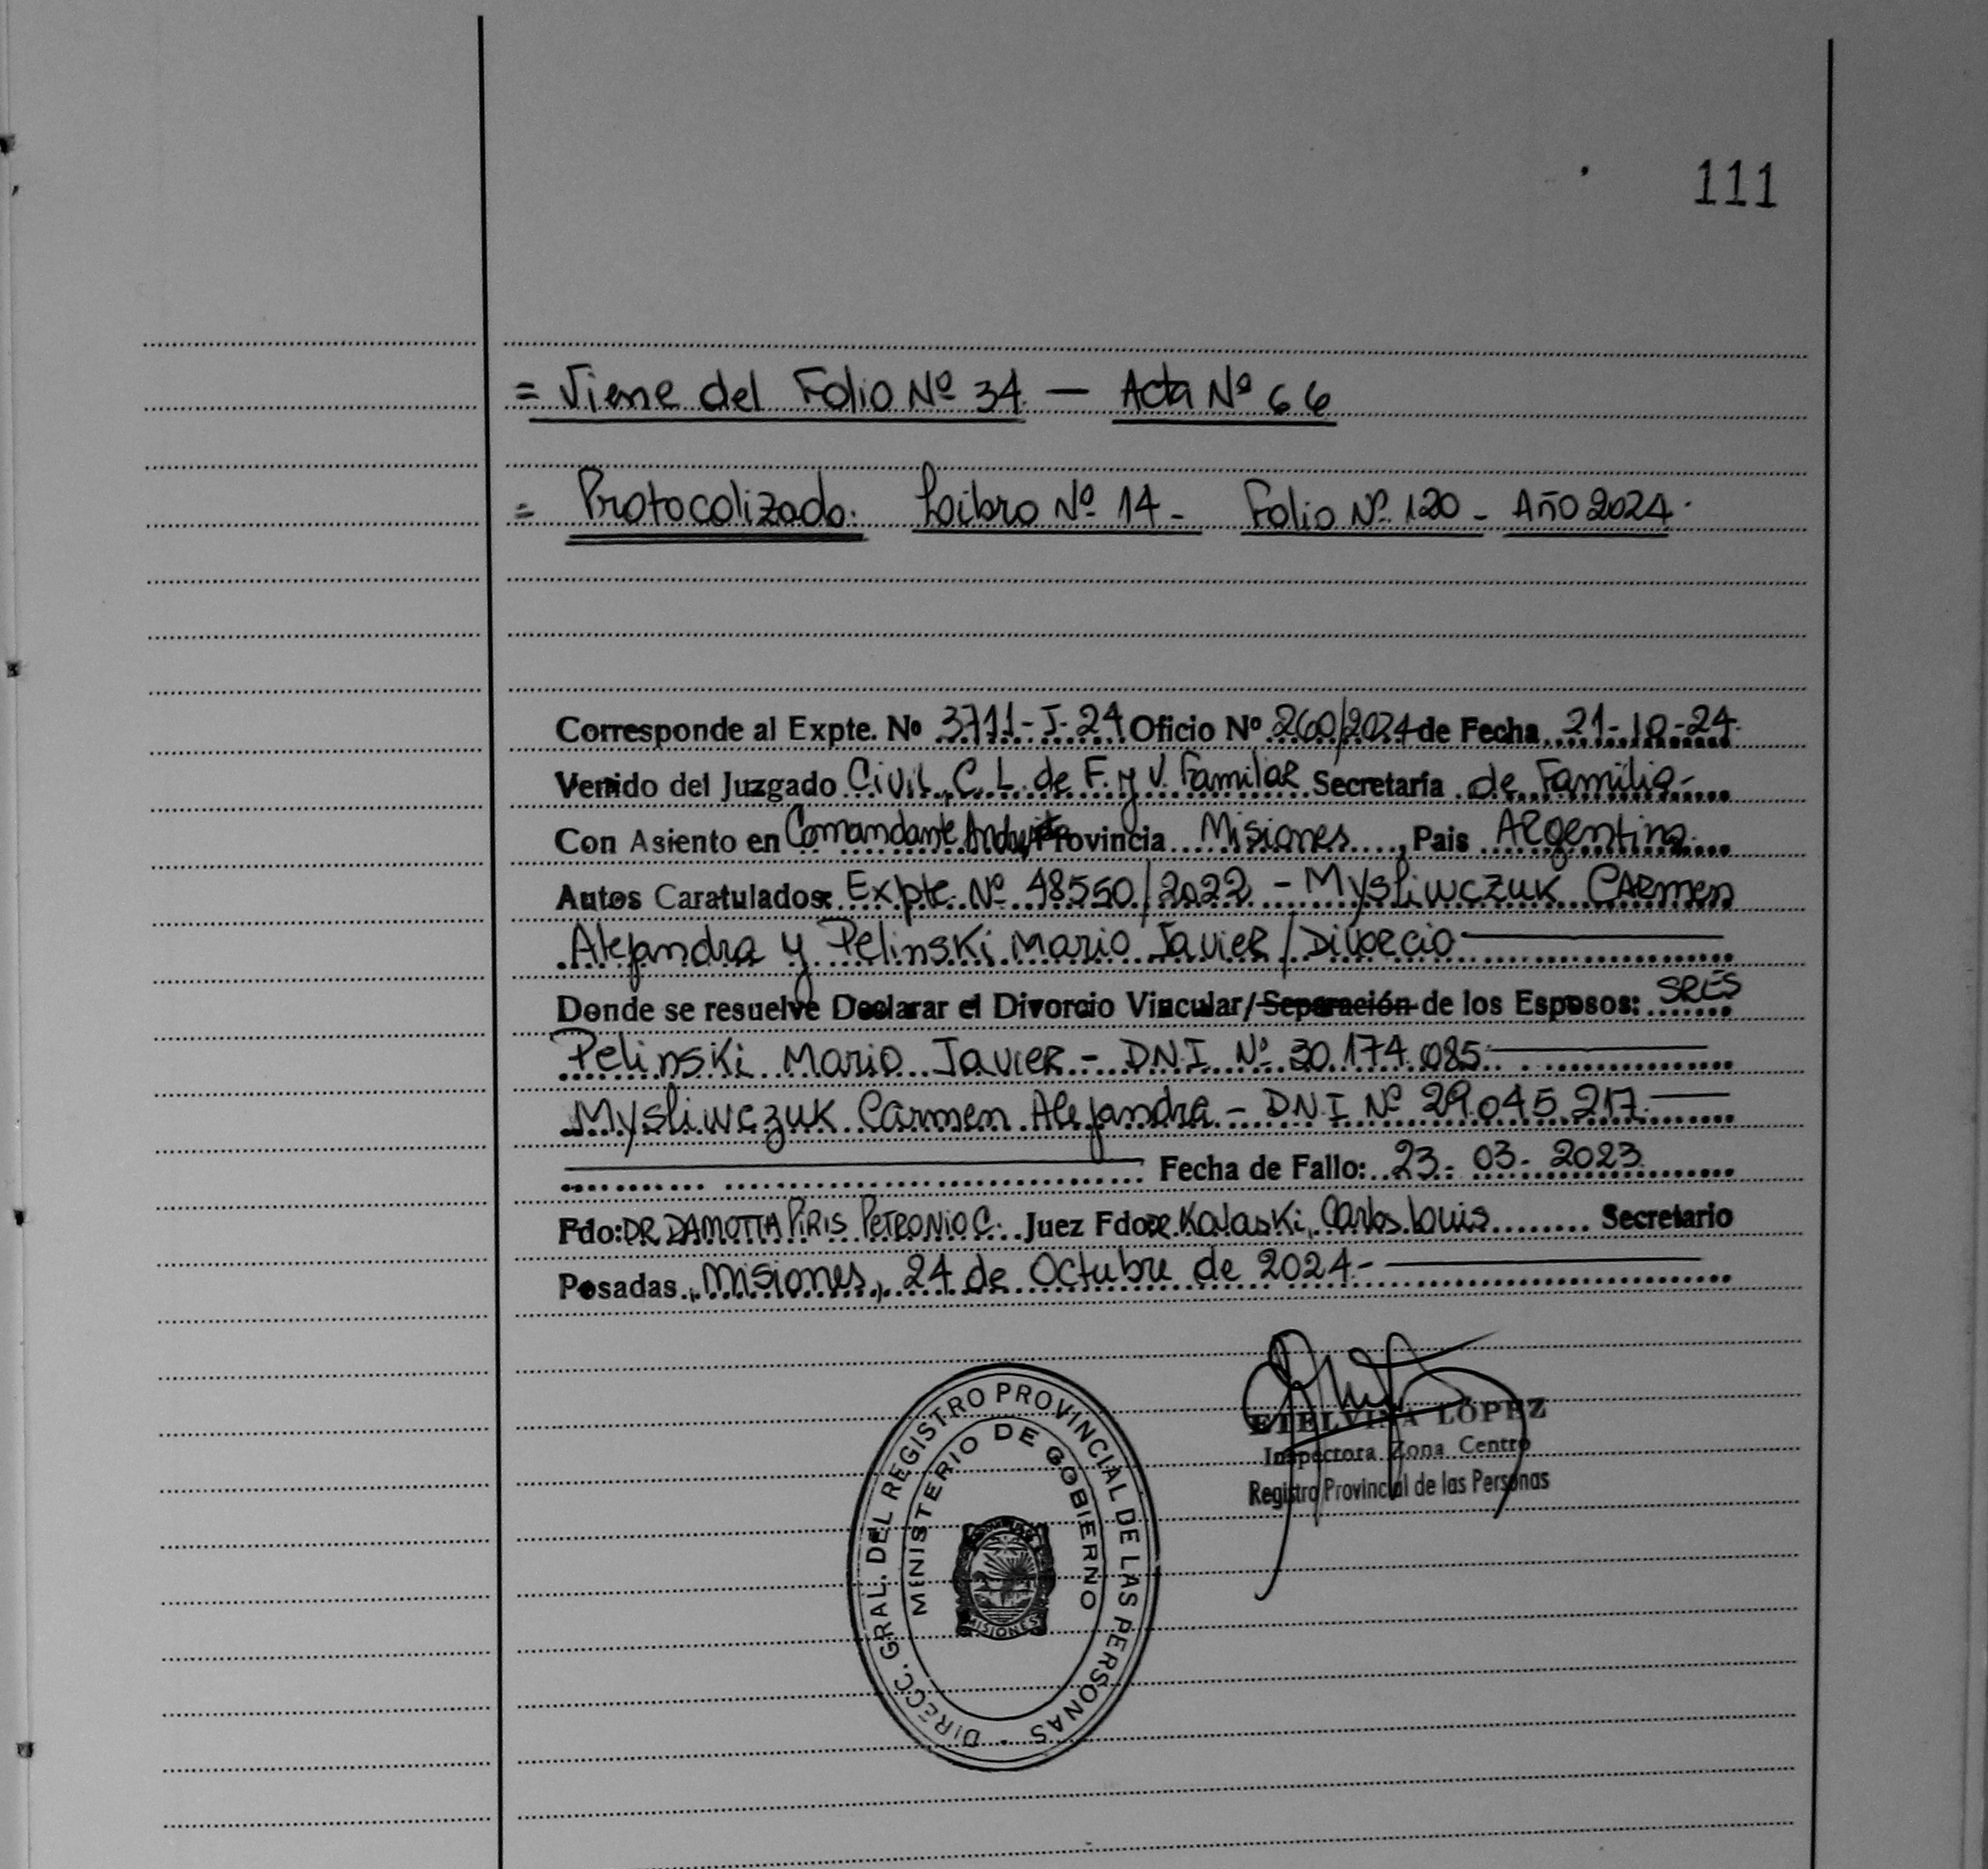 111
= Viene del Folio Nº 34 — Acta Nº 66
= Protocolizado. Libro Nº 14 - Folio Nº 120 - Año 2024.
Corresponde al Expte. Nº 3711-I-24 Oficio Nº 260/2024 de Fecha 21-10-24.
Venido del Juzgado Civil, C. L. de F. y V. Familiar Secretaría de Familia-
Con Asiento en Comandante Provincia Misiones, Pais Argentina.
Autos Caratulados: Expte. Nº 48550/2022 - Mysliwczuk Carmen
Alejandra y Pelinski Mario Javier / Divorcio
Donde se resuelve Declarar el Divorcio Vincular/Separación de los Esposos: SRES
Pelinski Mario Javier - DNI Nº 30.174.085
Mysliwczuk Carmen Alejandra - DNI Nº 29.045.217
Fecha de Fallo: 23-03-2023
Fdo: DR DAMOTTA PIRIS PETRONIO C. Juez Fdo DR. Carlos Luis Secretario
Posadas, Misiones, 24 de Octubre de 2024-
ETELVINA LOPEZ
Inspectora Zona Centro
Registro Provincial de las Personas
DIRECC. GRAL. DEL REGISTRO PROVINCIAL DE LAS PERSONAS
MINISTERIO DE GOBIERNO
MISIONES